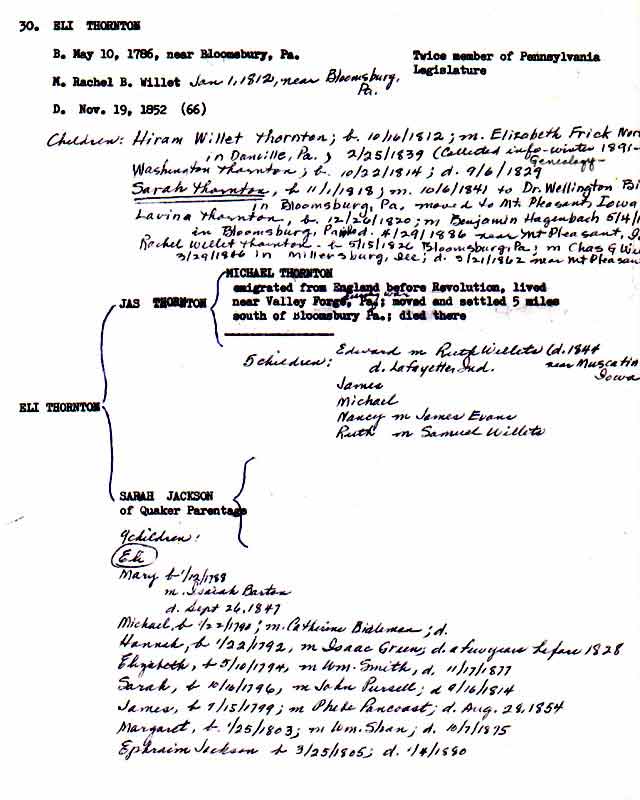 30. ELI THORNTON
B. May 10, 1786, near Bloomsburg, Pa.
Twice member of Pennsylvania
Legislature
M. Rachel B. Willet Jan 1, 1812, near Bloomsburg,
Pa.
D. Nov. 19, 1852 (66)
Children: Hiram Willet Thornton; b. 10/16/1812; m. Elizabeth Frick
in Danville, Pa., 2/25/1839 (Collected info-winter 1891-
Genealogy-
Washington Thornton; b. 10/22/1814; d. 9/6/1829
Sarah Thornton, b 11/1/1818; m. 10/6/1841 to Dr. Wellington
in Bloomsburg, Pa. moved to Mt. Pleasant, Iowa
Lavina Thornton, b. 12/26/1820; m Benjamin Hagenbach 5/4/
in Bloomsburg, Pa; d. 4/29/1886 near Mt Pleasant,
Rachel Willet Thornton b 5/15/1826 Bloomsburg, Pa; m Chas G
3/29/1846 in Millersburg, Ill; d. 3/21/1862 near Mt Pleasan
MICHAEL THORNTON
emigrated from England before Revolution, lived
JAS THORNTON
near Valley Forge, Pa.; moved and settled 5 miles
south of Bloomsbury Pa.; died there
5 children: Edward m Ruth Willets (d. 1844
d. Lafayette, Ind. near Muscatin
Iowa
James
Michael
ELI THORNTON
Nancy m James Evans
Ruth m Samuel Willets
SARAH JACKSON
of Quaker Parentage
9 children:
Eli
Mary b 1/12/1788
m. Isaiah Barton
d. Sept 26, 1847
Michael, b 1/22/1790; m. Catherine; d.
Hannah, b 1/22/1792, m Isaac Green; d. a few years before 1828
Elizabeth, b 5/10/1794, m Wm. Smith, d. 11/17/1877
Sarah, b 10/16/1796, m John Pursell; d 9/16/1814
James, b 7/15/1799; m Phebe Pancoast; d. Aug. 28, 1854
Margaret, b. 1/25/1803; m Wm. Shan; d. 10/7/1875
Ephraim Jackson b 3/25/1805; d. 1/4/1880